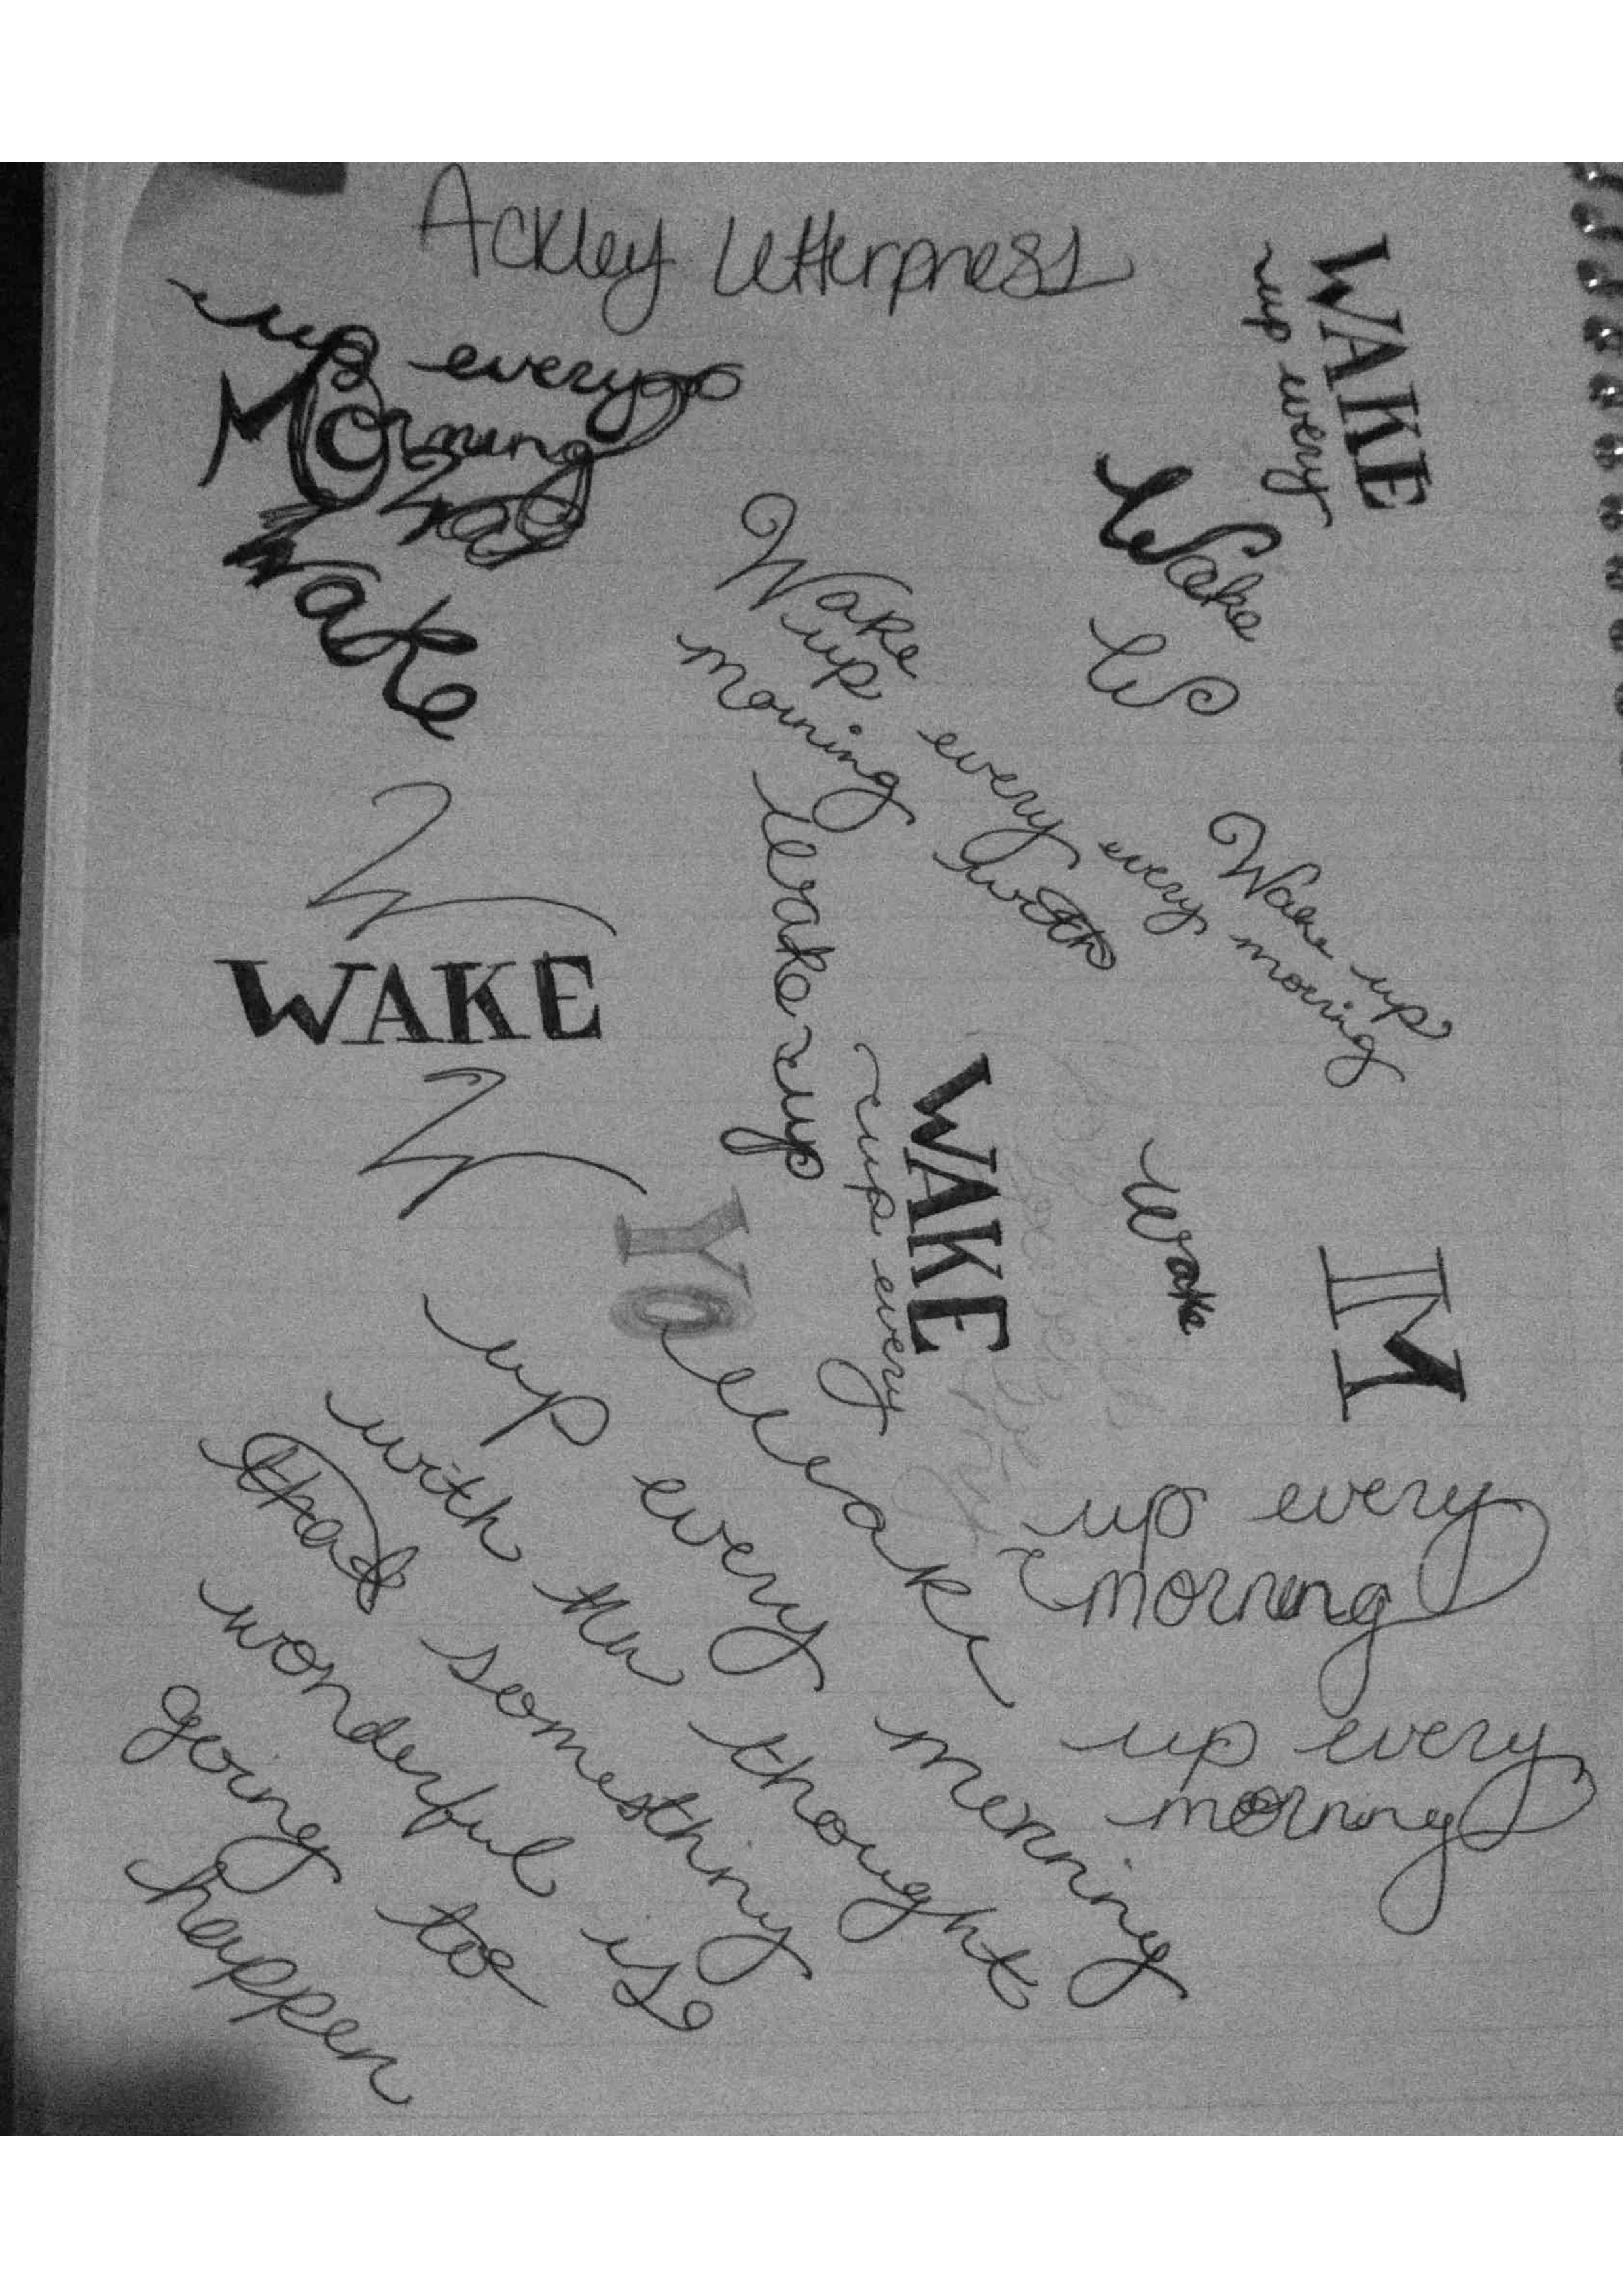 Ackley Letterpress
WAKE
up every
up every
Morning
Wake
Wake
W
Wake
up every
morning with
Wake up
every morning
W
WAKE
W
Wake up
WAKE
up every
Wake
M
YO
Wake
up every morning
with the thought
that something
wonderful is
going to
happen
up every
morning
up every
morning